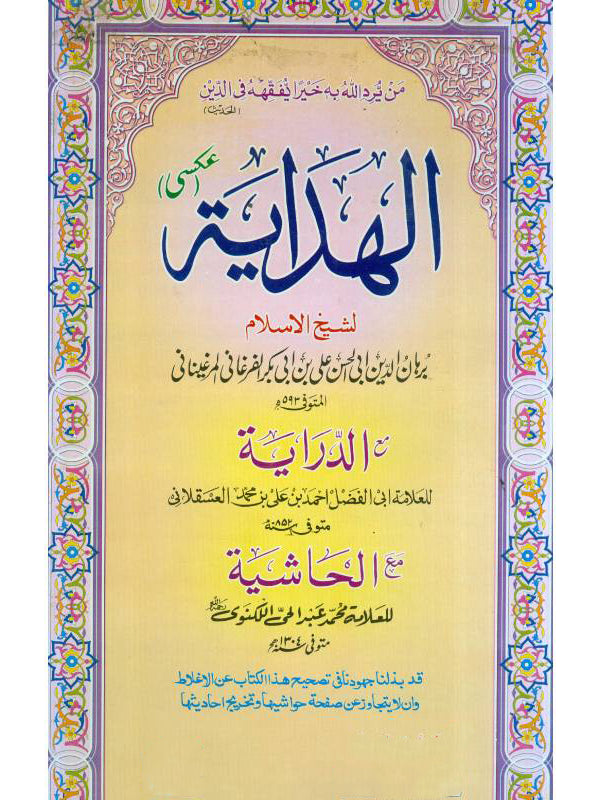 مَن يُّرِدِ اللهُ بِهٖ خَيْرًا يُّفَقِّهْهُ فِى الدِّيْنِ
(الحديث)
الهداية
(عكسى)
لشيخ الاسلام
برهان الدين ابى الحسن على بن ابى بكر الفرغانى المرغينانى
المتوفى ۵۹۳ھ
مع الدّراية
للعلامة ابى الفضل احمد بن على بن محمد العسقلانى
متوفى سنه ۸۵۲ھ
مَعَ الحاشية
للعلامة محمد عبد الحىّ اللكنوى رحمه الله
متوفى سنه ۱۳۰۴ھج
قد بذلنا جهودنا فى تصحيح هذا الكتاب عن الاغلاط
وان لا يتجاوز عن صفحة حواشيها وتخريج احاديثها